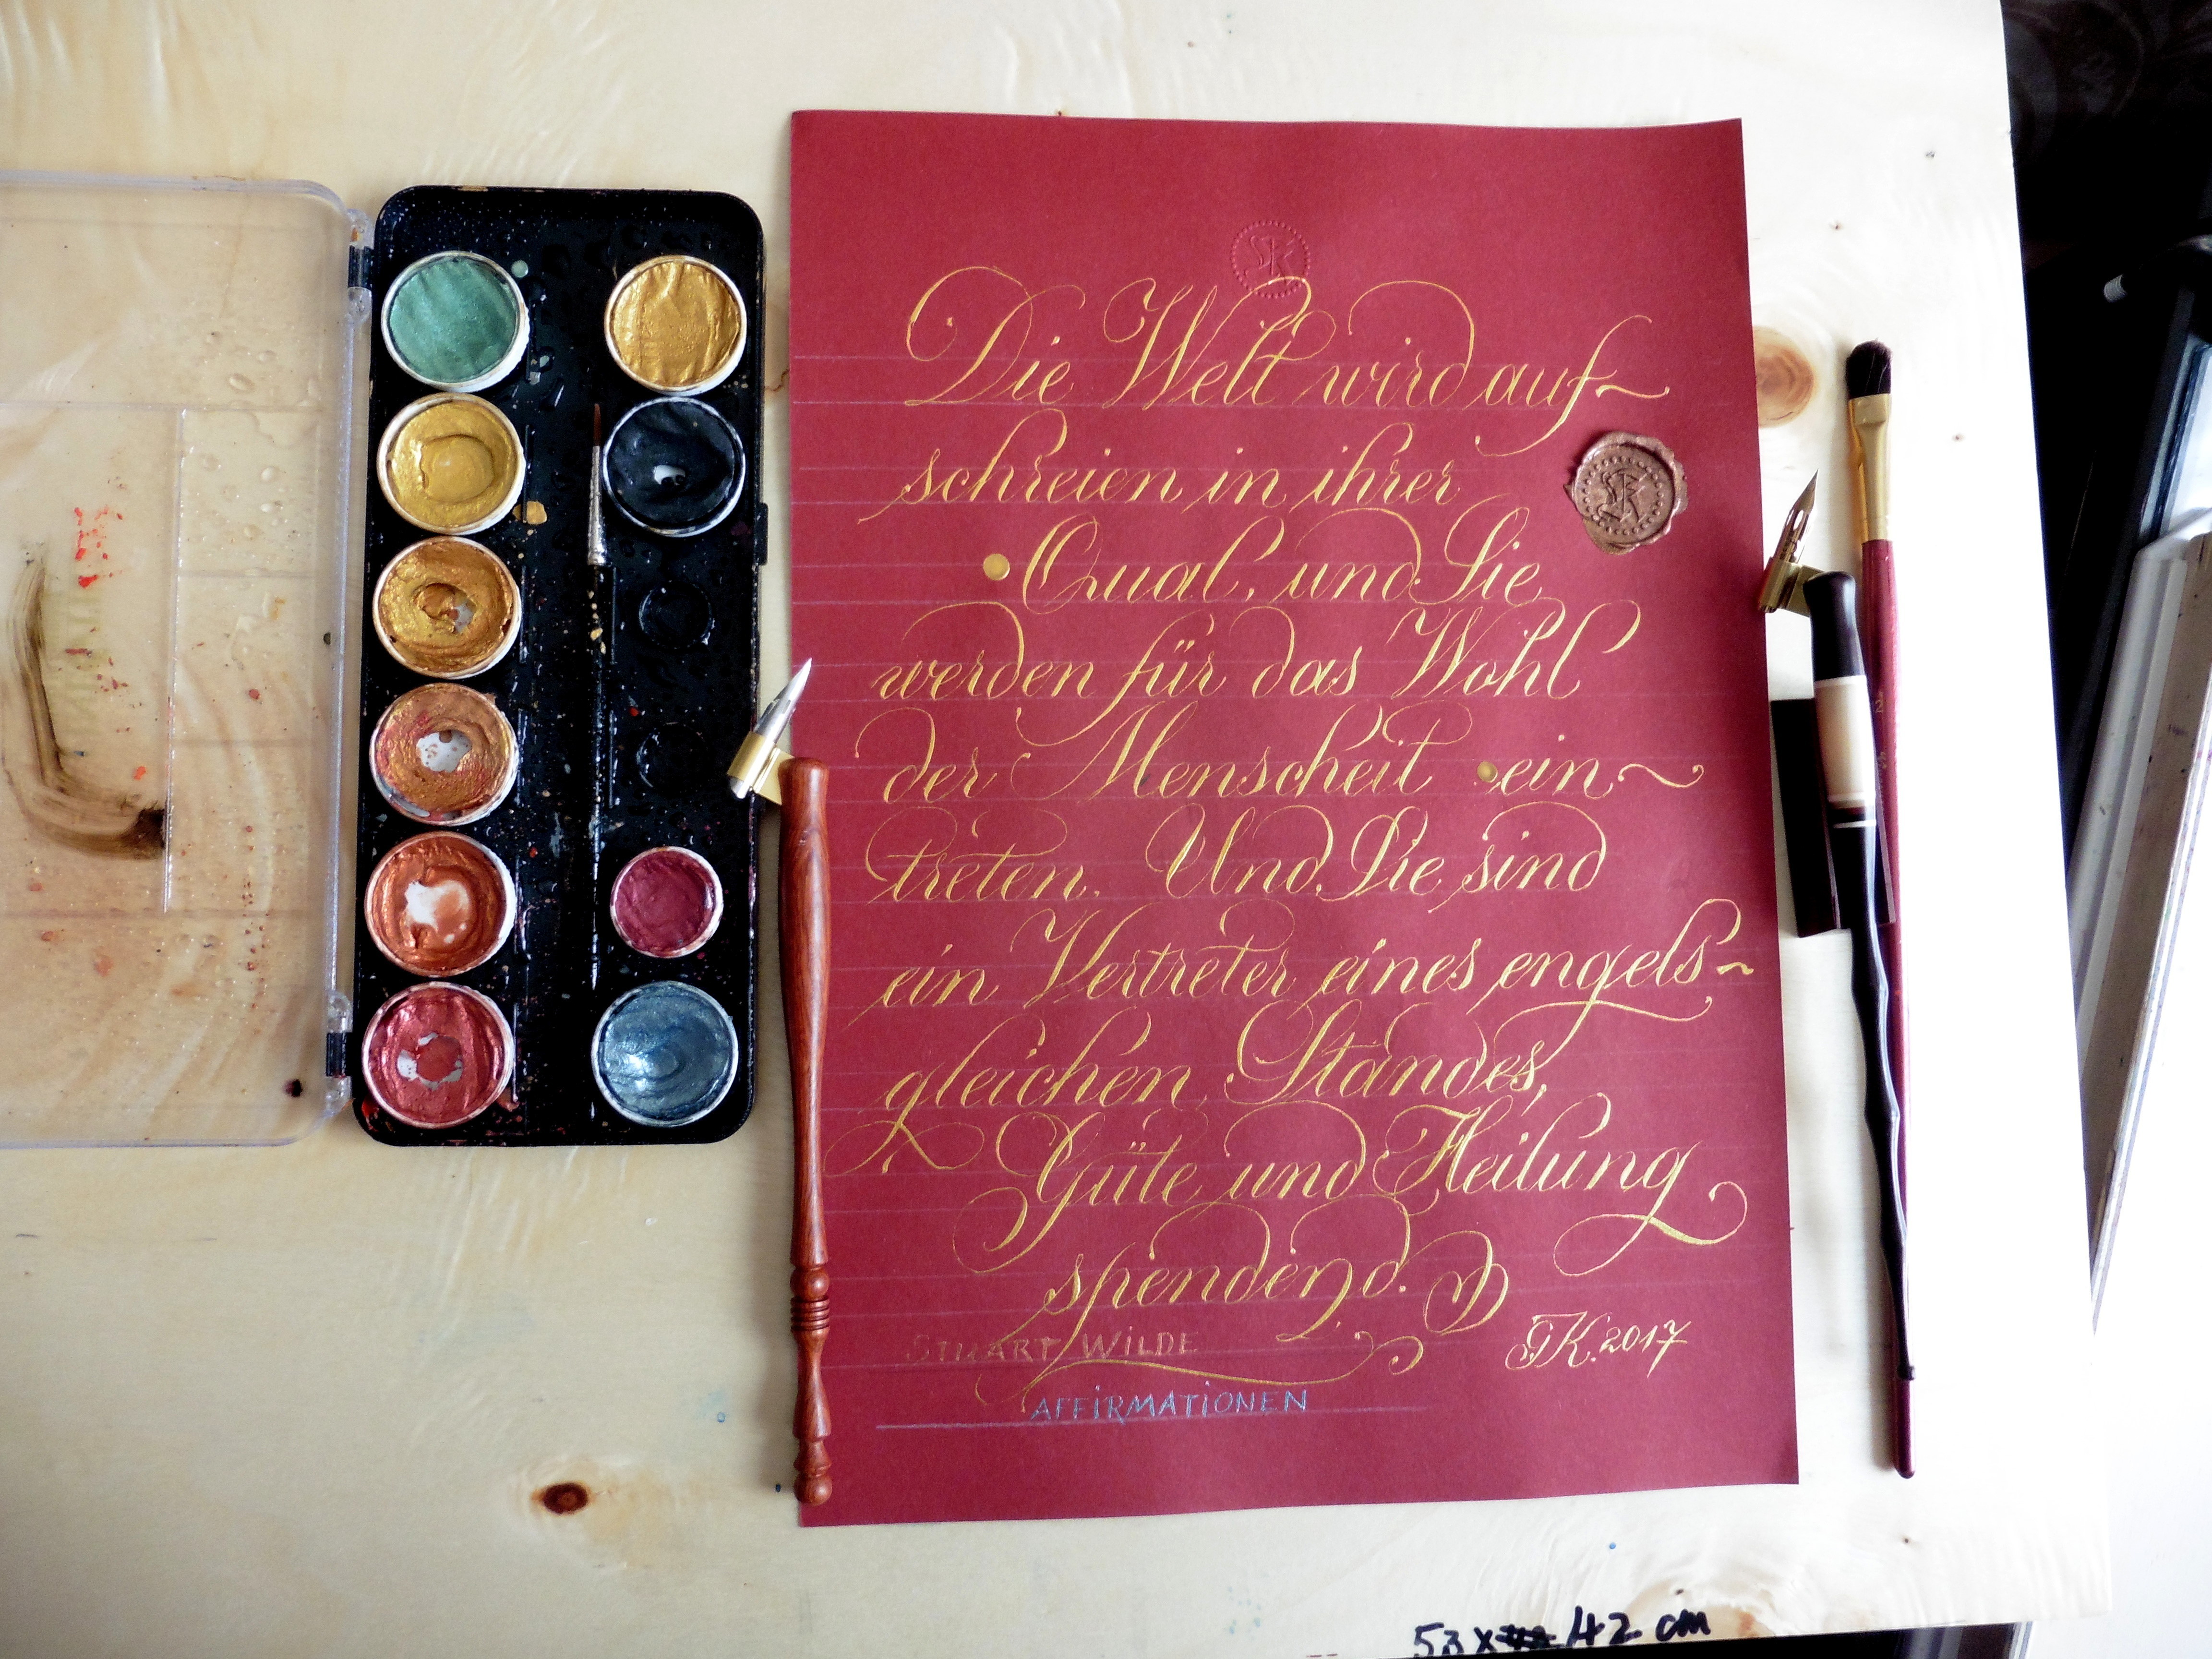 Die Welt wird auf~
schreien in ihrer
Qual, und Sie
werden für das Wohl
der Menscheit ein~
treten. Und Sie sind
ein Vertreter eines engels~
gleichen Standes,
Güte und Heilung
spendend.
STUART WILDE
AFFIRMATIONEN
K. 2017
53 x 42 cm